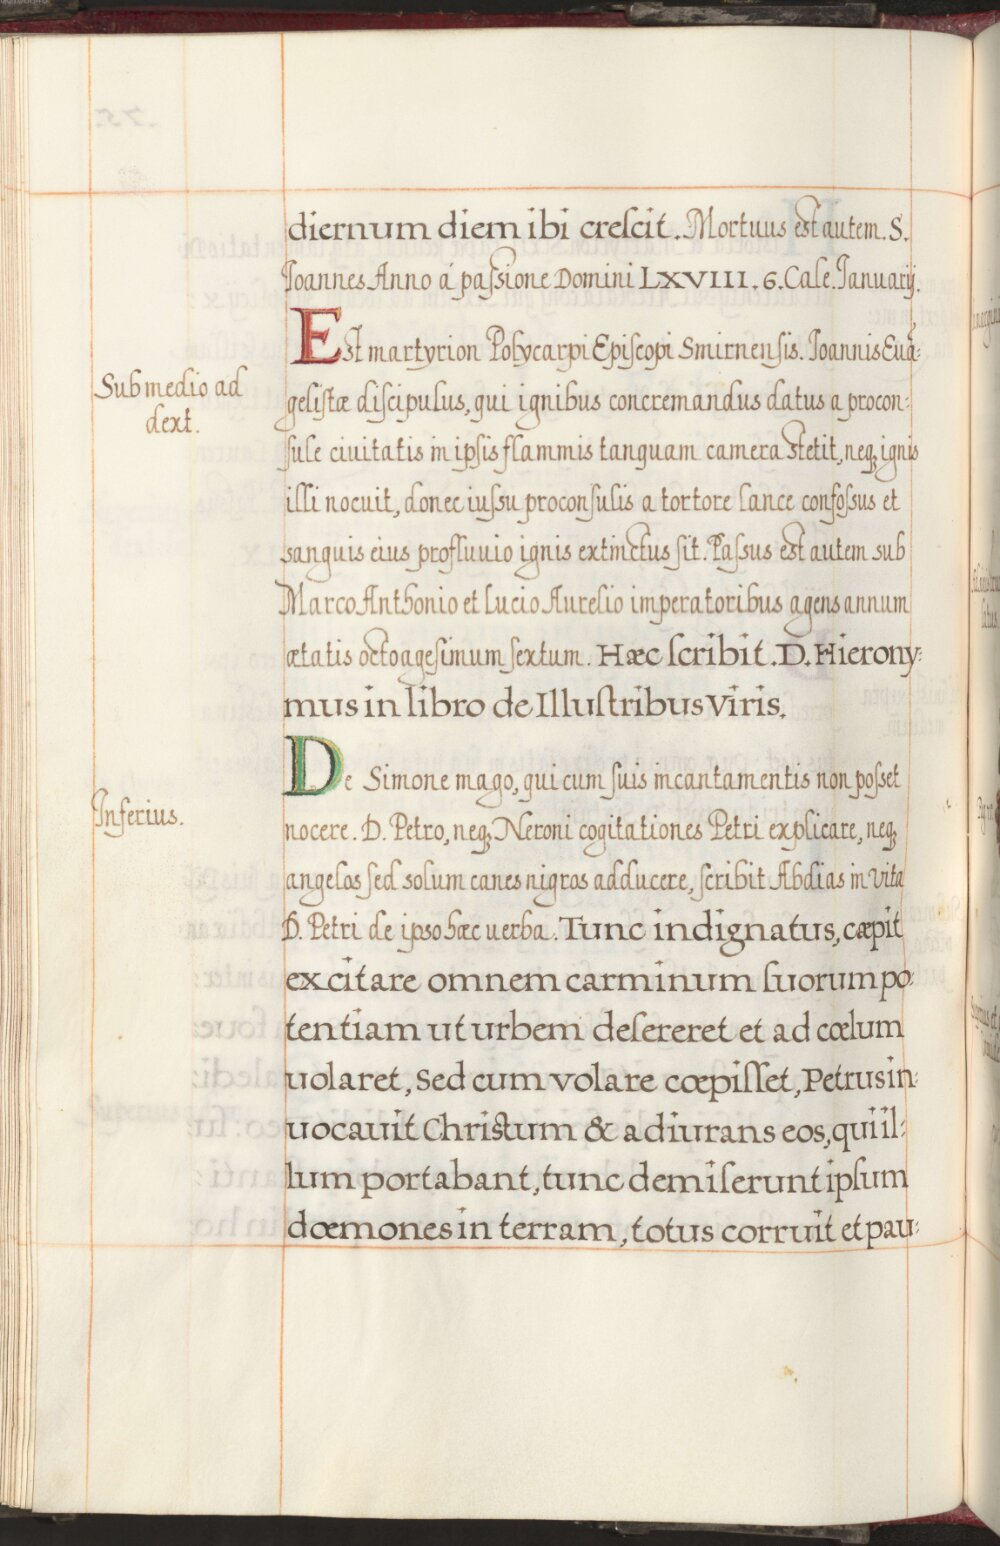 diernum diem ibi crescit. Mortuus est autem. S.
Joannes Anno á passione Domini LXVIII. 6. Cale. Januarij.
Est martyrion Polycarpi Episcopi Smirnensis. Joannis Euã-
Sub medio ad
dext.
gelistæ discipulus, qui ignibus concremandus datus a procon-
sule ciuitatis in ipsis flammis tanquam camera stetit, neq; ignis
illi nocuit, donec iussu proconsulis a tortore lance confossus et
sanguis eius profluuio ignis extinctus sit. Passus est autem sub
Marco Anthonio et Lucio Aurelio imperatoribus agens annum
ætatis octoagesimum sextum. Hæc scribit. D. Hierony-
mus in libro de Illustribus Viris.
De Simone mago, qui cum suis incantamentis non posset
Inferius.
nocere. D. Petro, neq; Neroni cogitationes Petri explicare, neq;
angelos sed solum canes nigros adducere, scribit Abdias in Vita
D. Petri de ipso hæc uerba. Tunc indignatus, cæpit
excitare omnem carminum suorum po-
tentiam ut urbem desereret et ad cœlum
uolaret, Sed cum volare cœpisset, Petrus in-
uocauit Christum & adiurans eos, qui il-
lum portabant, tunc demiserunt ipsum
dœmones in terram, totus corruit et pau-